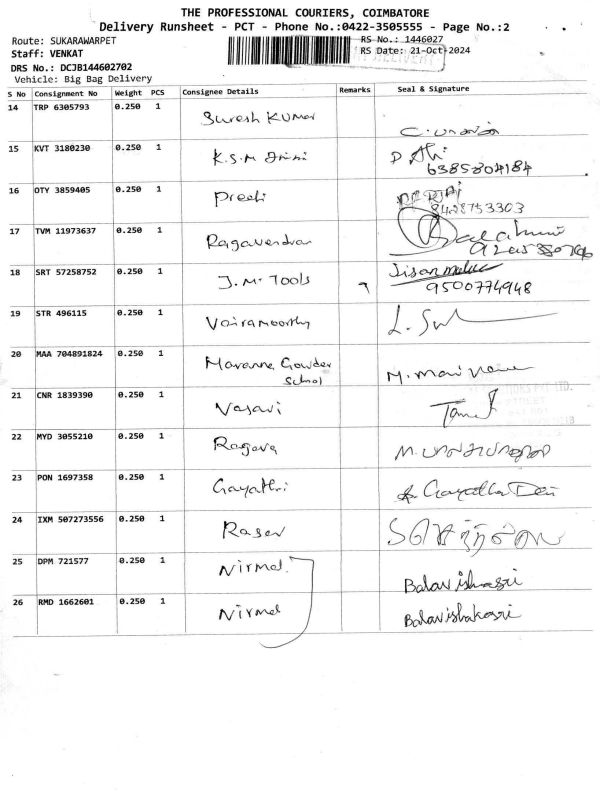 THE PROFESSIONAL COURIERS, COIMBATORE
Delivery Runsheet - PCT - Phone No.:0422-3505555 - Page No.:2
Route: SUKARAWARPET
RS No.: 1446027
Staff: VENKAT
RS Date: 21-Oct-2024
DRS No.: DCJB144602702
Vehicle: Big Bag Delivery
S No Consignment No Weight PCS Consignee Details Remarks Seal & Signature
14 TRP 6305793 0.250 1 Suresh Kumar
15 KVT 3180230 0.250 1 K.S.M 6385804184
16 OTY 3859405 0.250 1 Preeti 8428753303
17 TVM 11973637 0.250 1 Ragavendran
18 SRT 57258752 0.250 1 J.M. Tools 9500774948
19 STR 496115 0.250 1 Vairamoorthy
20 MAA 704891824 0.250 1 Maranna Gowder
School
21 CNR 1839390 0.250 1 Vasavi
22 MYD 3055210 0.250 1 Ragava
23 PON 1697358 0.250 1 Gayathri Gayathri Devi
24 IXM 507273556 0.250 1
25 DPM 721577 0.250 1 Nirmal
26 RMD 1662601 0.250 1 Nirmal